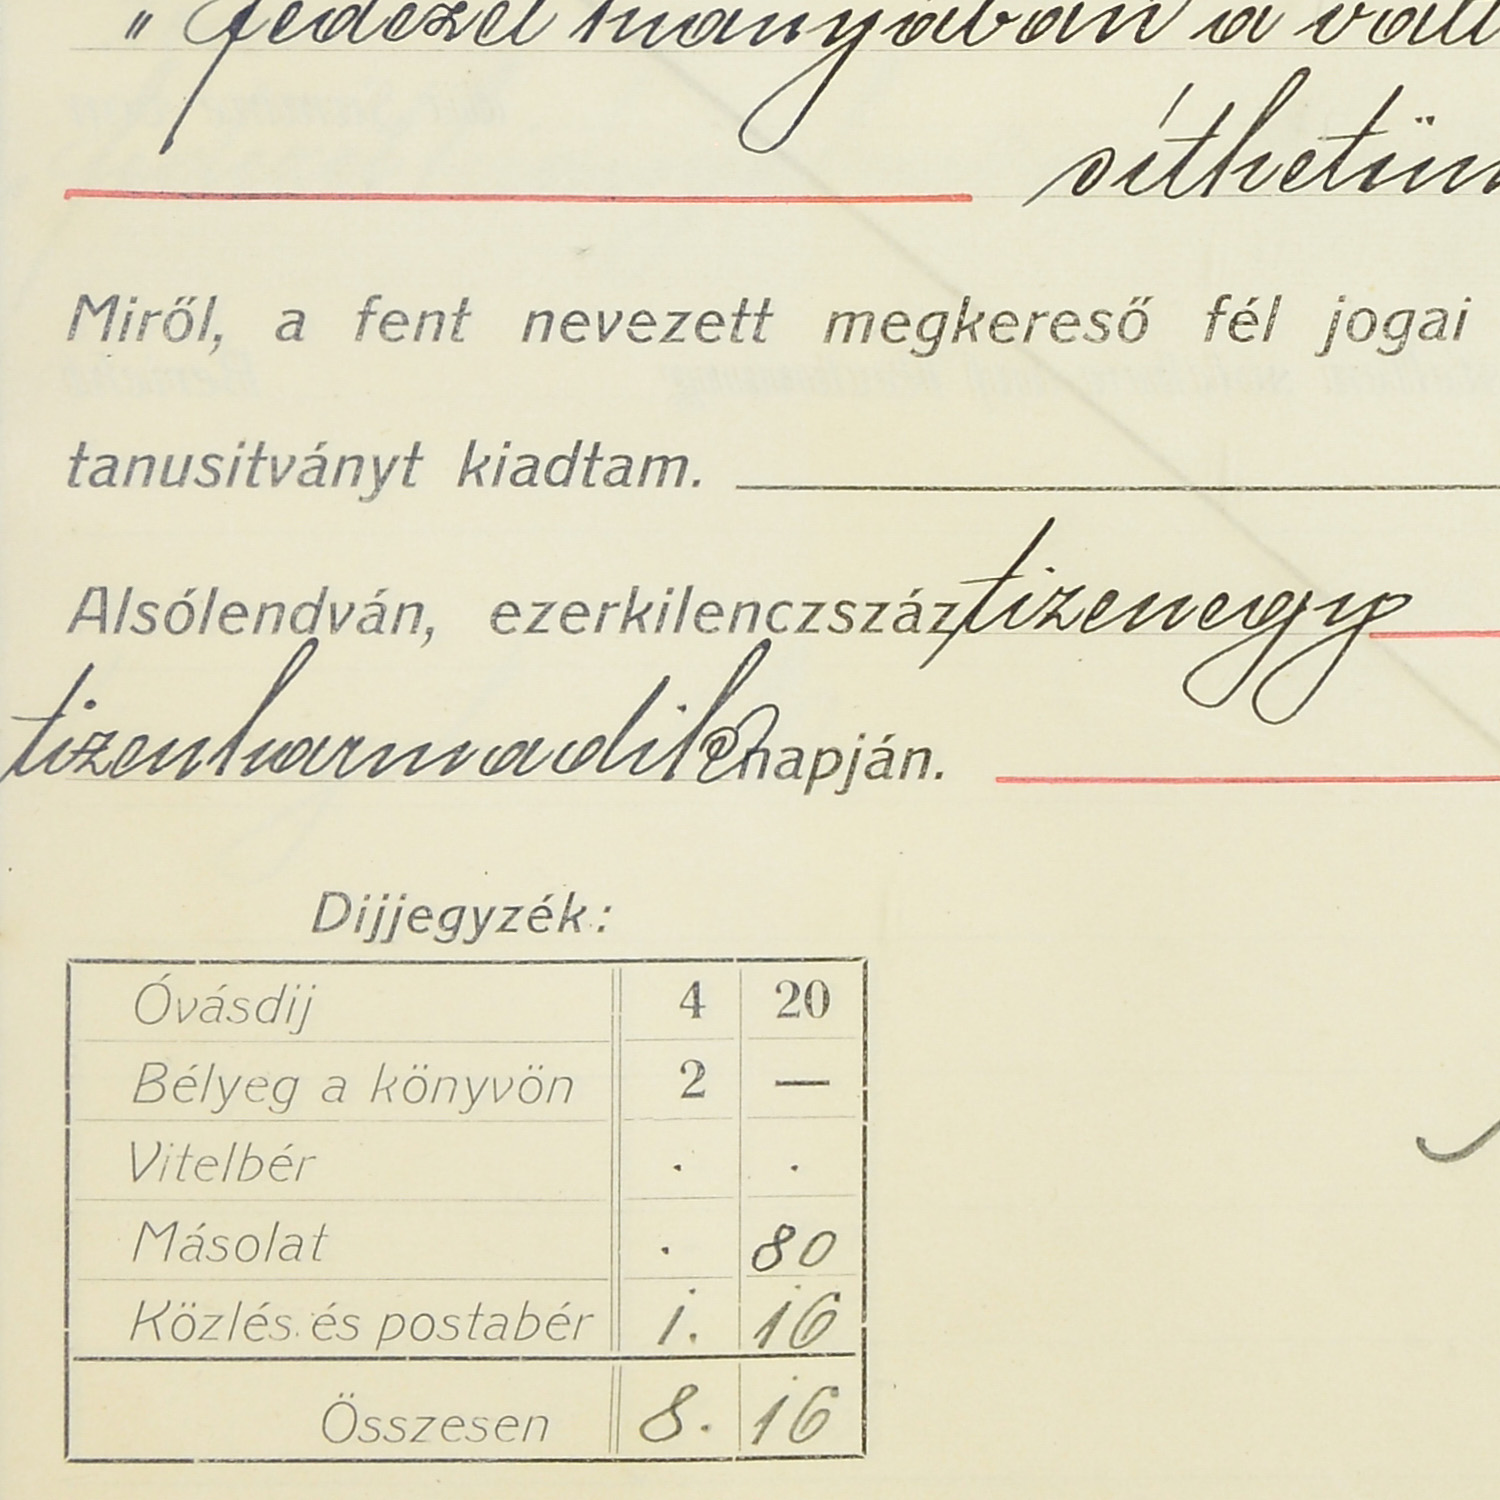 " fedezet hiányában a vált
síthetün
Miről, a fent nevezett megkereső fél jogai
tanusitványt kiadtam.
Alsólendván, ezerkilenczszáztizenegy
tizenharmadik napján.
Dijjegyzék:
Óvásdij 4 20
Bélyeg a könyvön 2 —
Vitelbér . .
Másolat . 80
Közlés és postabér 1. 16
Összesen 8. 16